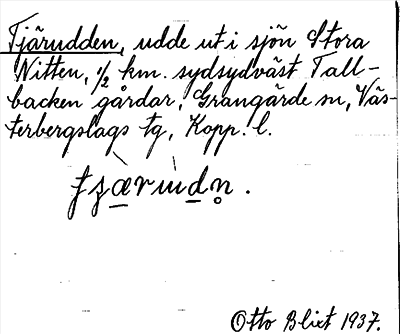 Tjärudden, udde ut i sjön Stora
Nitten, ½ km. sydsydväst Tall-
backen gårdar, Grangärde sn, Väs-
terbergslags tg, Kopp. l.
Otto Blixt 1937.